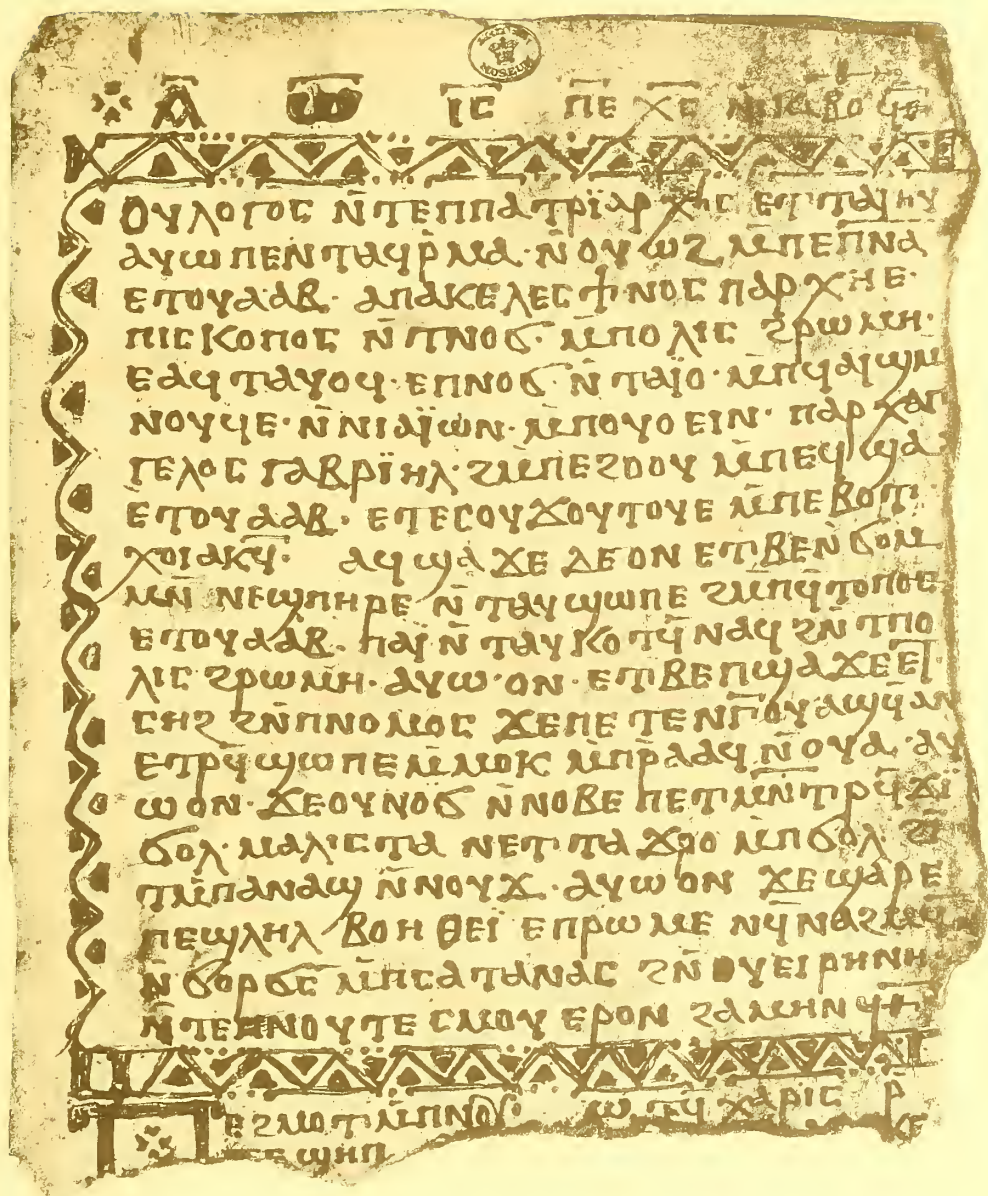 MUSEUM
Ⲁ̅ Ⲱ̅ ⲓ̅ⲥ̅ ⲡⲉ ⲭⲉ
ⲟⲩⲗⲟⲅⲟⲥ ⲛ̄ⲧⲉⲡⲡⲁⲧⲣⲓ̈ⲁⲣⲭⲏⲥ ⲉⲧⲧⲁⲓ̈ⲏⲩ
ⲁⲩⲱ ⲡⲉⲛⲧⲁϥⲣ̄ⲙⲁ· ⲛ̄ⲟⲩⲱϩ ⲙ̄ⲡⲉⲡ̅ⲛ̅ⲁ̅
ⲉⲧⲟⲩⲁⲁⲃ· ⲁⲡⲁⲕⲉⲗⲉⲥϯⲛⲟⲥ ⲡⲁⲣⲭⲏⲉ·
ⲡⲓⲥⲕⲟⲡⲟⲥ ⲛ̄ⲧⲛⲟϭ· ⲙ̄ⲡⲟⲗⲓⲥ ϩⲣⲱⲙⲏ·
ⲉⲁϥⲧⲁⲩⲟϥ· ⲉⲡⲛⲟϭ· ⲛ̄ⲧⲁⲓ̈ⲟ· ⲙ̄ⲡϥⲁⲓ̈ϣⲙ̄
ⲛⲟⲩϥⲉ· ⲛ̄ⲛⲓⲁⲓ̈ⲱⲛ· ⲙ̄ⲡⲟⲩⲟⲉⲓⲛ· ⲡⲁⲣⲭⲁⲅ
ⲅⲉⲗⲟⲥ ⲅⲁⲃⲣⲓ̈ⲏⲗ· ϩⲙ̄ⲡⲉϩⲟⲟⲩ ⲙ̄ⲡⲉϥϣⲁ
ⲉⲧⲟⲩⲁⲁⲃ· ⲉⲧⲉⲥⲟⲩϫⲟⲩⲧⲟⲩⲉ ⲙ̄ⲡⲉⲃⲟⲧ
ⲭⲟⲓⲁⲕϥ̄· ⲁϥϣⲁϫⲉ ⲇⲉⲟⲛ ⲉⲧⲃⲉⲛ̄ϭⲟⲙ
ⲙⲛ̄ ⲛⲉϣⲡⲏⲣⲉ ⲛ̄ⲧⲁⲩϣⲱⲡⲉ ϩⲙ̄ⲡϥ̄ⲧⲟⲡⲟⲥ
ⲉⲧⲟⲩⲁⲁⲃ· ⲡⲁⲓ̈ ⲛ̄ⲧⲁⲩⲕⲟⲧϥ̄ ⲛⲁϥ ϩⲛ̄ ⲧⲡⲟ
ⲗⲓⲥ ϩⲣⲱⲙⲏ· ⲁⲩⲱ·ⲟⲛ· ⲉⲧⲃⲉⲡϣⲁϫⲉ ⲉⲧ·
ⲥⲏϩ ϩⲛ̄ⲡⲛⲟⲙⲟⲥ ϫⲉⲡⲉⲧⲉⲛⲅ̄ⲟⲩⲁϣϥ ⲁⲛ
ⲉⲧⲣϥ̄ϣⲱⲡⲉ ⲙ̄ⲙⲟⲕ ⲙ̄ⲡⲣ̄ⲁⲁϥ ⲛ̄ⲟⲩⲁ· ⲁⲩ
ⲱ ⲟⲛ· ϫⲉⲟⲩⲛⲟϭ ⲛ̄ⲛⲟⲃⲉ ⲡⲉⲧⲙ̄ⲛ̄ⲧⲣϥ̄ϫⲓ̈
ϭⲟⲗ· ⲙⲁⲗⲓⲥⲧⲁ ⲛⲉⲧⲧⲁϫⲣⲟ ⲙ̄ⲡϭⲟⲗ ϩⲙ̄
ⲡⲁⲛⲁϣ ⲛ̄ⲛⲟⲩϫ· ⲁⲩⲱ ⲟⲛ ϫⲉϣⲁⲣⲉ
ⲡⲉϣⲗⲏⲗ ⲃⲟⲏⲑⲉⲓ̈ ⲉⲡⲣⲱⲙⲉ ⲛϥ̄ⲛⲁϩⲙⲉϥ
ⲛ̄ϭⲟⲣϭⲥ̄ ⲙ̄ⲡⲥⲁⲧⲁⲛⲁⲥ ϩⲛ̄ ⲟⲩⲉⲓⲣⲏⲛⲏ·
ⲛ̄ⲧⲉⲡⲛⲟⲩⲧⲉ ⲥⲙⲟⲩ ⲉⲣⲟⲛ ϩⲁⲙⲏⲛ
ⲡⲉϩⲙⲟⲧ ⲙ̄ⲡⲛⲟϭ ⲭⲁⲣⲓⲥ
ϣⲏⲡ